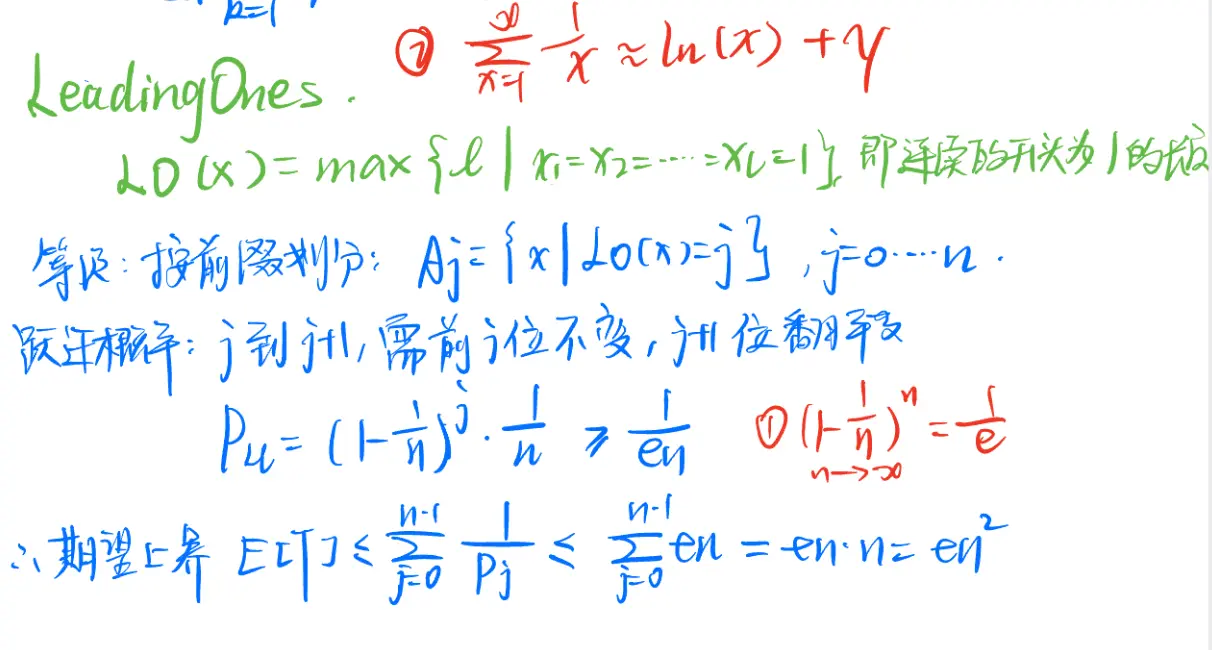 k=1
② \sum_{x=1}^{\infty} \frac{1}{x} ≈ ln(x) + γ
LeadingOnes.
LO(x) = max{l | x₁=x₂=⋯⋯=x_L=1}, 即连续的开头为1的长度
等级:按前缀划分: Aj={x|LO(x)=j}, j=0⋯⋯n.
跃迁概率: j到j+1, 需前j位不变, j+1位翻转
P = (1-\frac{1}{n})^j · \frac{1}{n} ≥ \frac{1}{en} ① (1-\frac{1}{n})^n = \frac{1}{e}
n→∞
∴期望上界 E[T] ≤ \sum_{j=0}^{n-1} \frac{1}{Pj} ≤ \sum_{j=0}^{n-1} en = en·n = en²